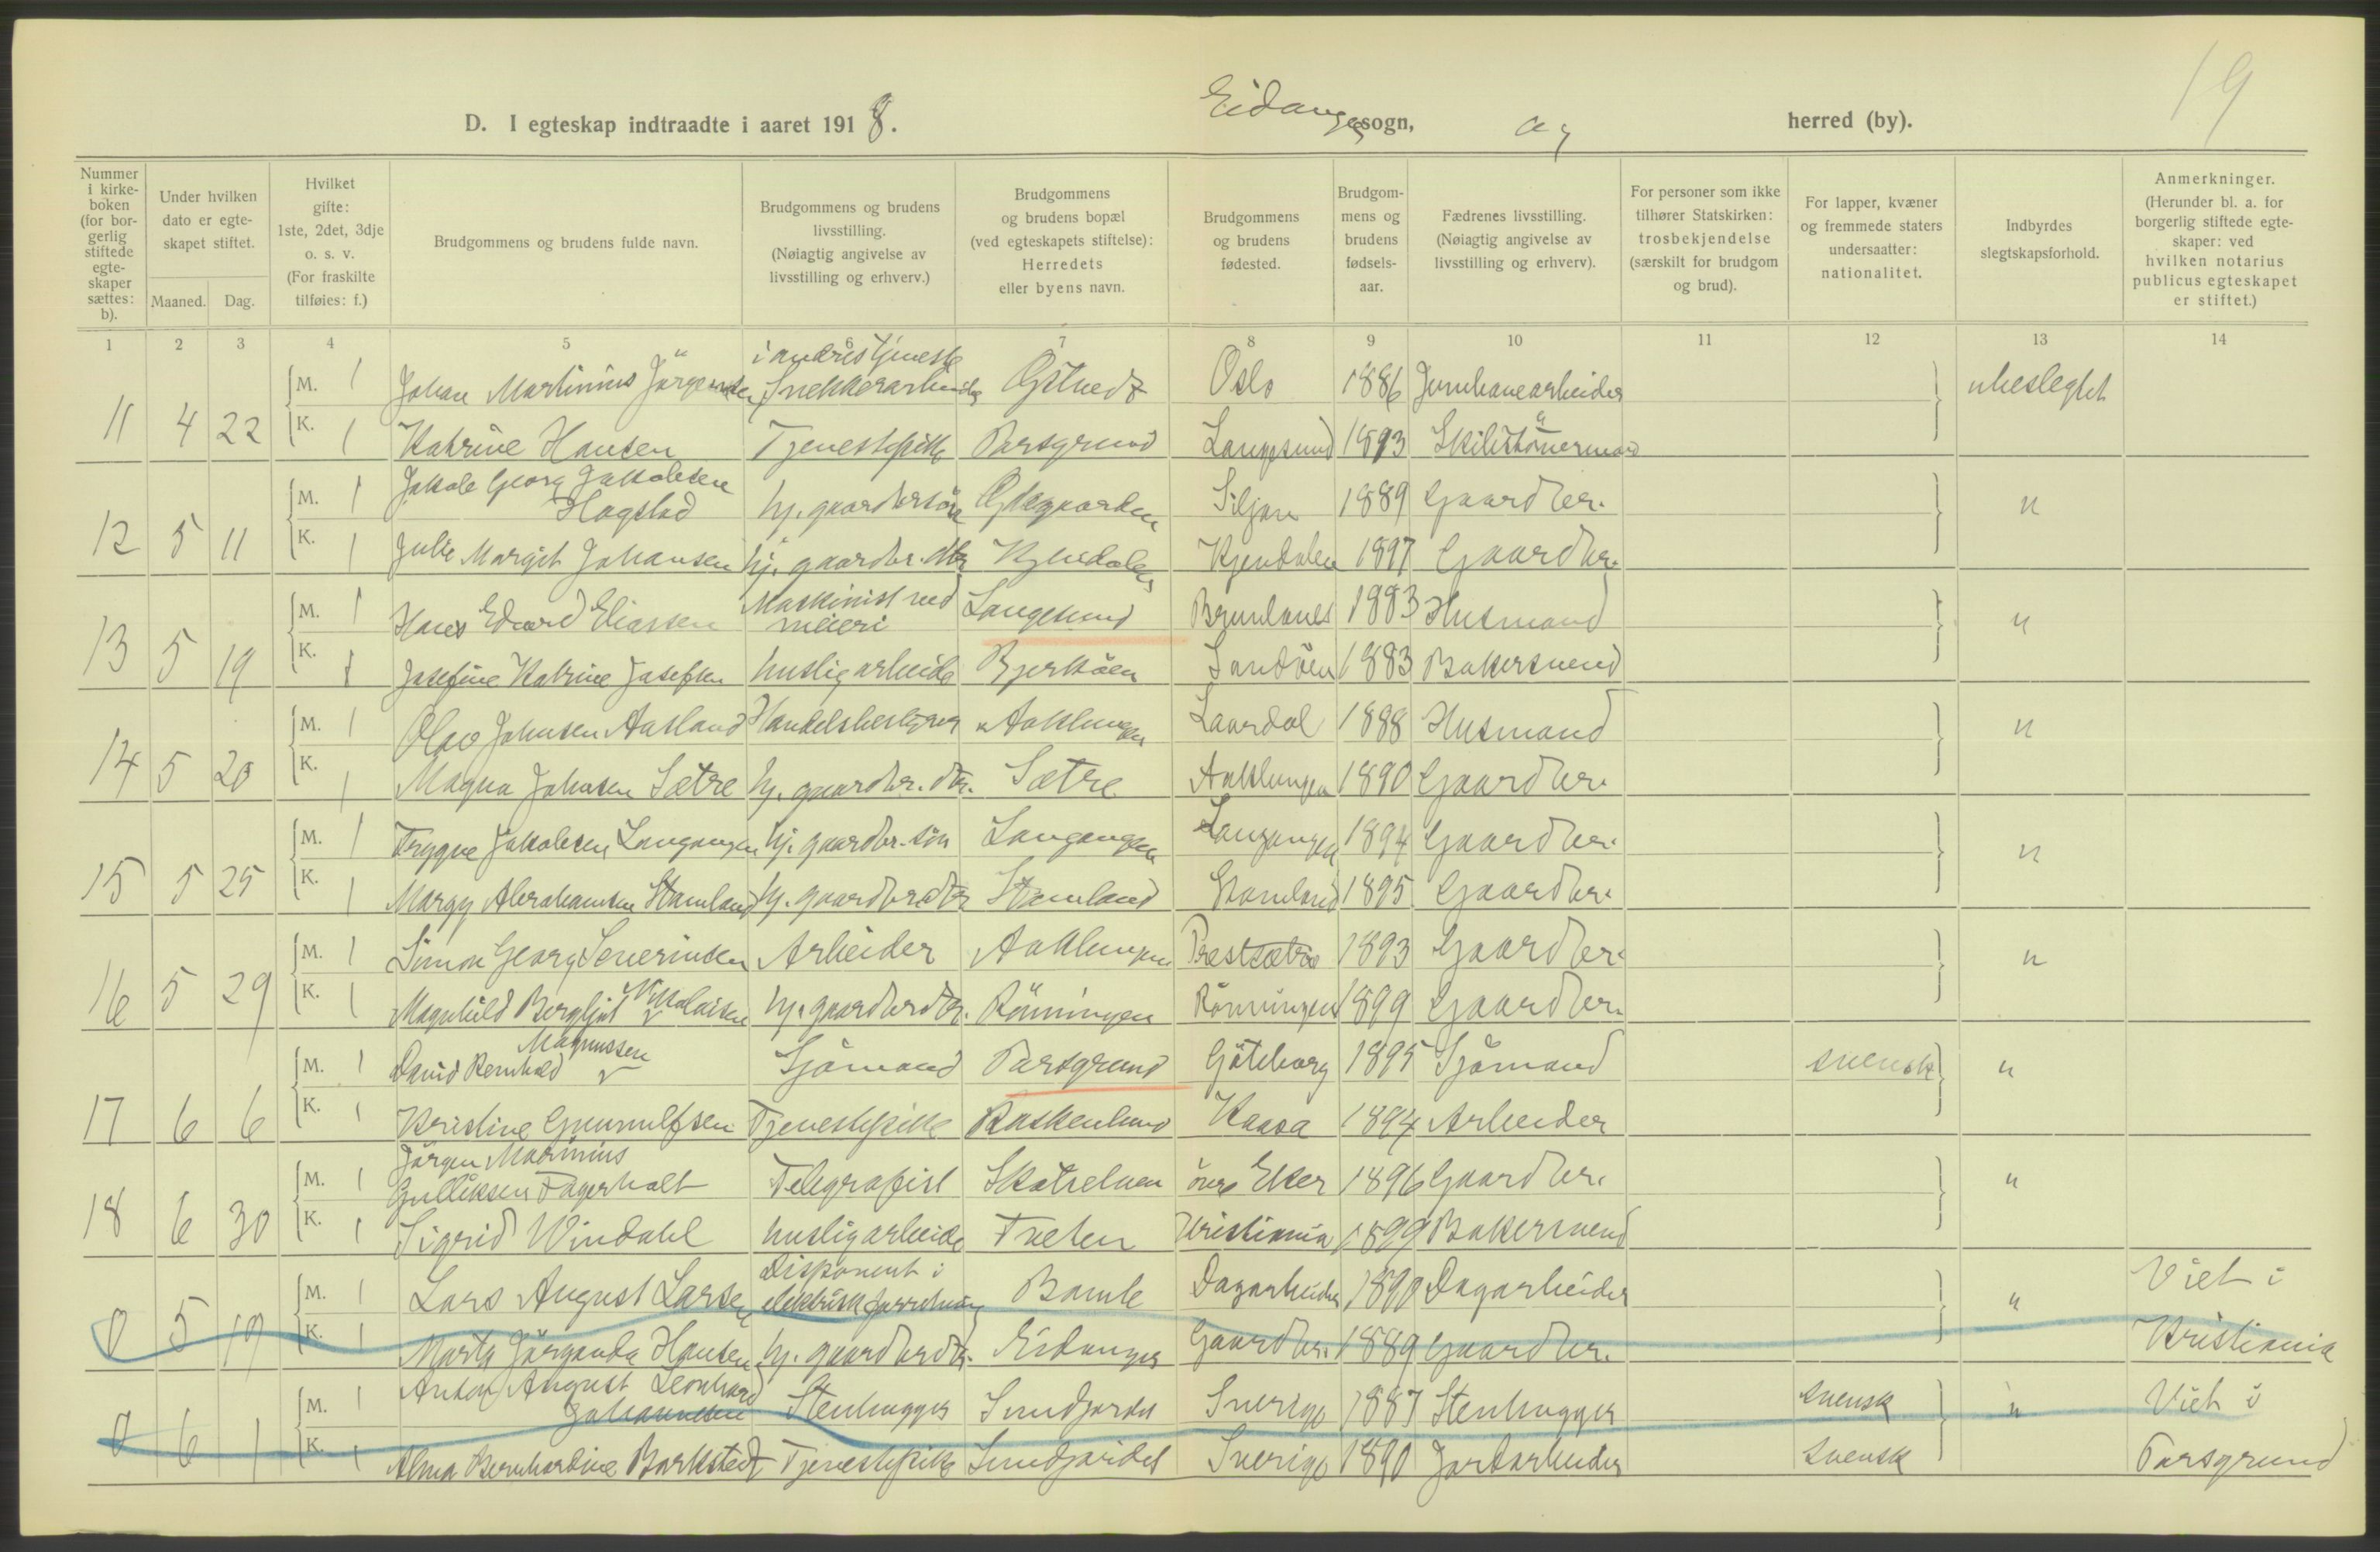 19
D. I egteskap indtraadte i aaret 1918. Eidanger sogn, og herred (by).
Nummer i kirkeboken (for borgerlig stiftede egteskaper sættes: b).
Under hvilken dato er egteskapet stiftet.
Maaned. Dag.
Hvilket gifte: 1ste, 2det, 3dje o. s. v. (For fraskilte tilføies: f.)
Brudgommens og brudens fulde navn.
Brudgommens og brudens livsstilling. (Nøiagtig angivelse av livsstilling og erhverv.)
Brudgommens og brudens bopæl (ved egteskapets stiftelse): Herredets eller byens navn.
Brudgommens og brudens fødested.
Brudgommens og brudens fødselsaar.
Fædrenes livsstilling. (Nøiagtig angivelse av livsstilling og erhverv).
For personer som ikke tilhører Statskirken: trosbekjendelse (særskilt for brudgom og brud).
For lapper, kvæner og fremmede staters undersaatter: nationalitet.
Indbyrdes slegtskapsforhold.
Anmerkninger. (Herunder bl. a. for borgerlig stiftede egteskaper: ved hvilken notarius publicus egteskapet er stiftet.)
1 2 3 4 5 6 7 8 9 10 11 12 13 14
i andres tjeneste
M. 1 Johan Martinius Jörgensen Snekkerarbeider Østved Oslo 1886 Jernbanearbeider ubeslegtet
11 4 22 K. 1 Katrine Hansen Tjenestepike Porsgrund Langesund 1893 Skibstömmermand
M. 1 Jakob Georg Jakobsen Hogstad hj. gaardbr.sön Ødegaarden Siljan 1889 Gaardbr. "
12 5 11 K. 1 Julie Margit Johansen hj. gaardbr. dtr. Kjendalen Kjendalen 1897 Gaardbr.
M. 1 Hans Edvard Eliassen Maskinist ved meieri Langesund Brunlanes 1883 Husmand "
13 5 19 K. 1 Josefine Katrine Josefsen huslig arbeide Bjerköen Sandöen 1883 Bakersvend
M. 1 Olav Johnsen Aasland Handelsbestyrer Aaklungen Laardal 1888 Husmand "
14 5 20 K. 1 Magna Johnsen Sætre hj. gaardbr. dtr. Sætre Aaklungen 1890 Gaardbr.
M. 1 Trygve Jakobsen Langangen hj. gaardbr. sön Langangen Langangen 1894 Gaardbr. "
15 5 25 K. 1 Margy Abrahamsen Stamland hj. gaardbr. dtr Stamland Stamland 1895 Gaardbr.
M. 1 Simon Georg Severinsen Arbeider Aaklungen Præstsætra 1893 Gaardbr. "
16 5 29 K. 1 Magnhild Bergljot Nikolaisen hj. gaardbr dtr. Rönningen Rönningen 1899 Gaardbr.
M. 1 David Bernhard Magnussen Sjömand Porsgrund Göteborg 1895 Sjömand svensk "
17 6 6 K. 1 Kristine Gunnulfsen Tjenestepike Raskenlund Kaasa 1894 Arbeider
M. 1 Jörgen Marinius Gulliksen Fagerholt Telegrafist Skotselven övre Eker 1896 Gaardbr. "
18 6 30 K. 1 Sigrid Windahl huslig arbeide Tveten Kristiania 1899 Bakersvend
M. 1 Lars August Larsen Disponent i elektrisk forretning Bamle Dagarbeider 1890 Dagarbeider " Viet i
0 5 19 K. 1 Marta Jörganda Hansen hj. gaardbr dtr. Eidanger Gaardbr. 1889 Gaardbr. Kristiania
M. 1 Anton August Leonhard Johannesen Stenhugger Sundjordet Sverige 1887 Stenhugger svensk " Viet i
0 6 1 K. 1 Alma Bernhardine Barkstedt Tjenestepike Sundjordet Sverige 1890 Jordarbeider svensk Porsgrund